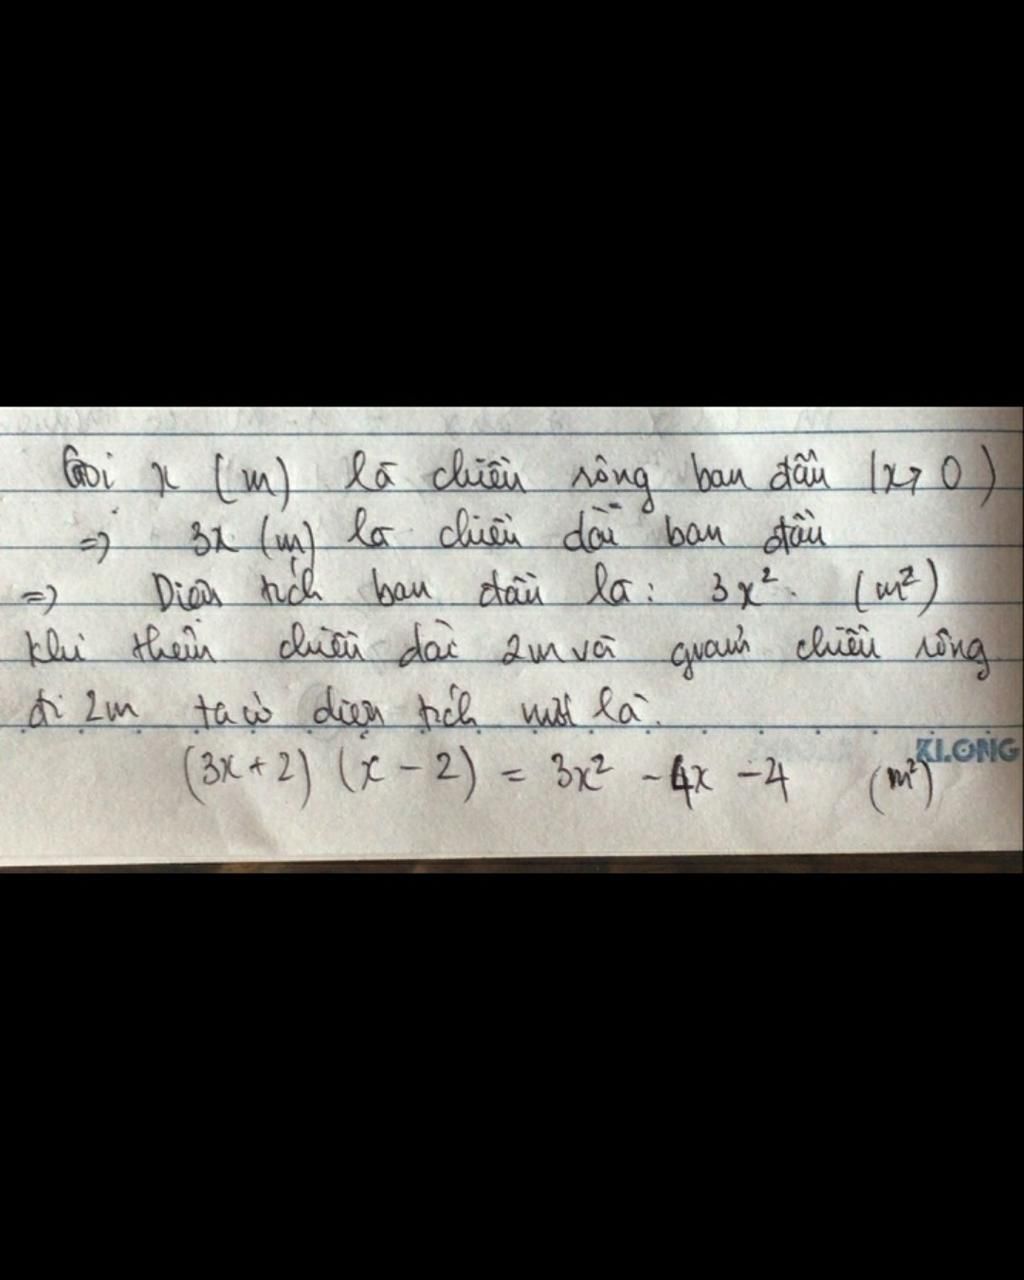 Gọi x (m) là chiều rộng ban đầu (x > 0)
=> 3x (m) là chiều dài ban đầu
=> Diện tích ban đầu là: 3x². (m²)
Khi thêm chiều dài 2m và giảm chiều rộng
đi 2m ta có diện tích mới là.
KLONG
(3x + 2) (x - 2) = 3x² - 4x - 4 (m²)